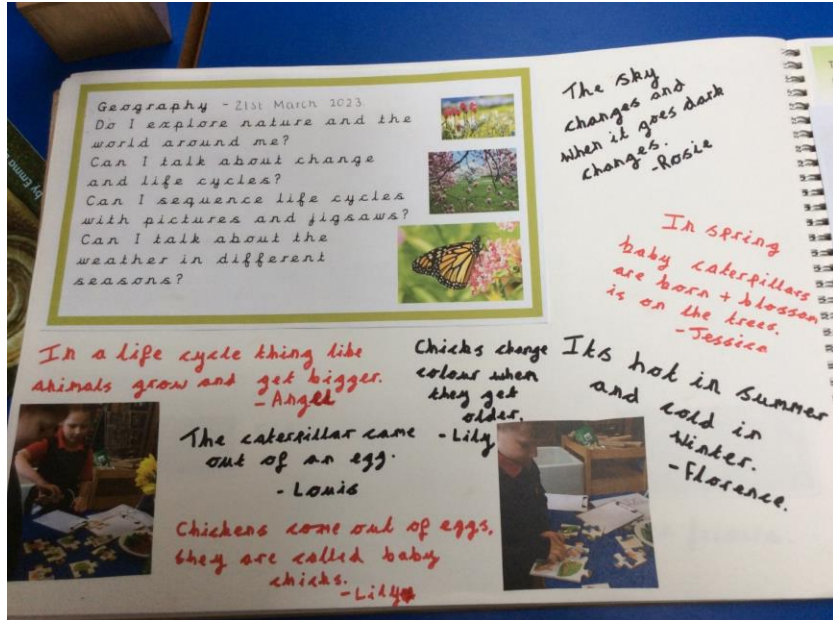 Geography - 21st March 2023.
Do I explore nature and the
world around me?
Can I talk about change
and life cycles?
Can I sequence life cycles
with pictures and jigsaws?
Can I talk about the
weather in different
seasons?
The sky
changes and
when it goes dark
changes.
-Rosie
In spring
baby caterpillars
are born + blossom
is on the trees.
-Jessica
In a life cycle thing like
animals grow and get bigger.
-Angel
Chicks change
colour when
they get
older.
-Lily
Its hot in summer
and cold in
Winter.
-Florence.
The caterpillar came
out of an egg.
- Louis
Chickens come out of eggs,
they are called baby
chicks.
-Lily
by Emma